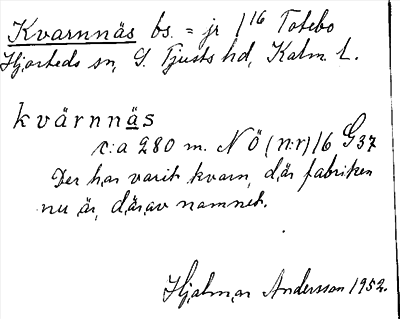 Kvarnnäs bs. = jr 1/16 Totebo
Hjorteds sn, S. Tjusts hd, Kalm. L.
kvärnnäs
c:a 280 m. NÖ (n:r) 16 G37
Der har varit kvarn, där fabriken
nu är, därav namnet.
Hjalmar Andersson 1952.